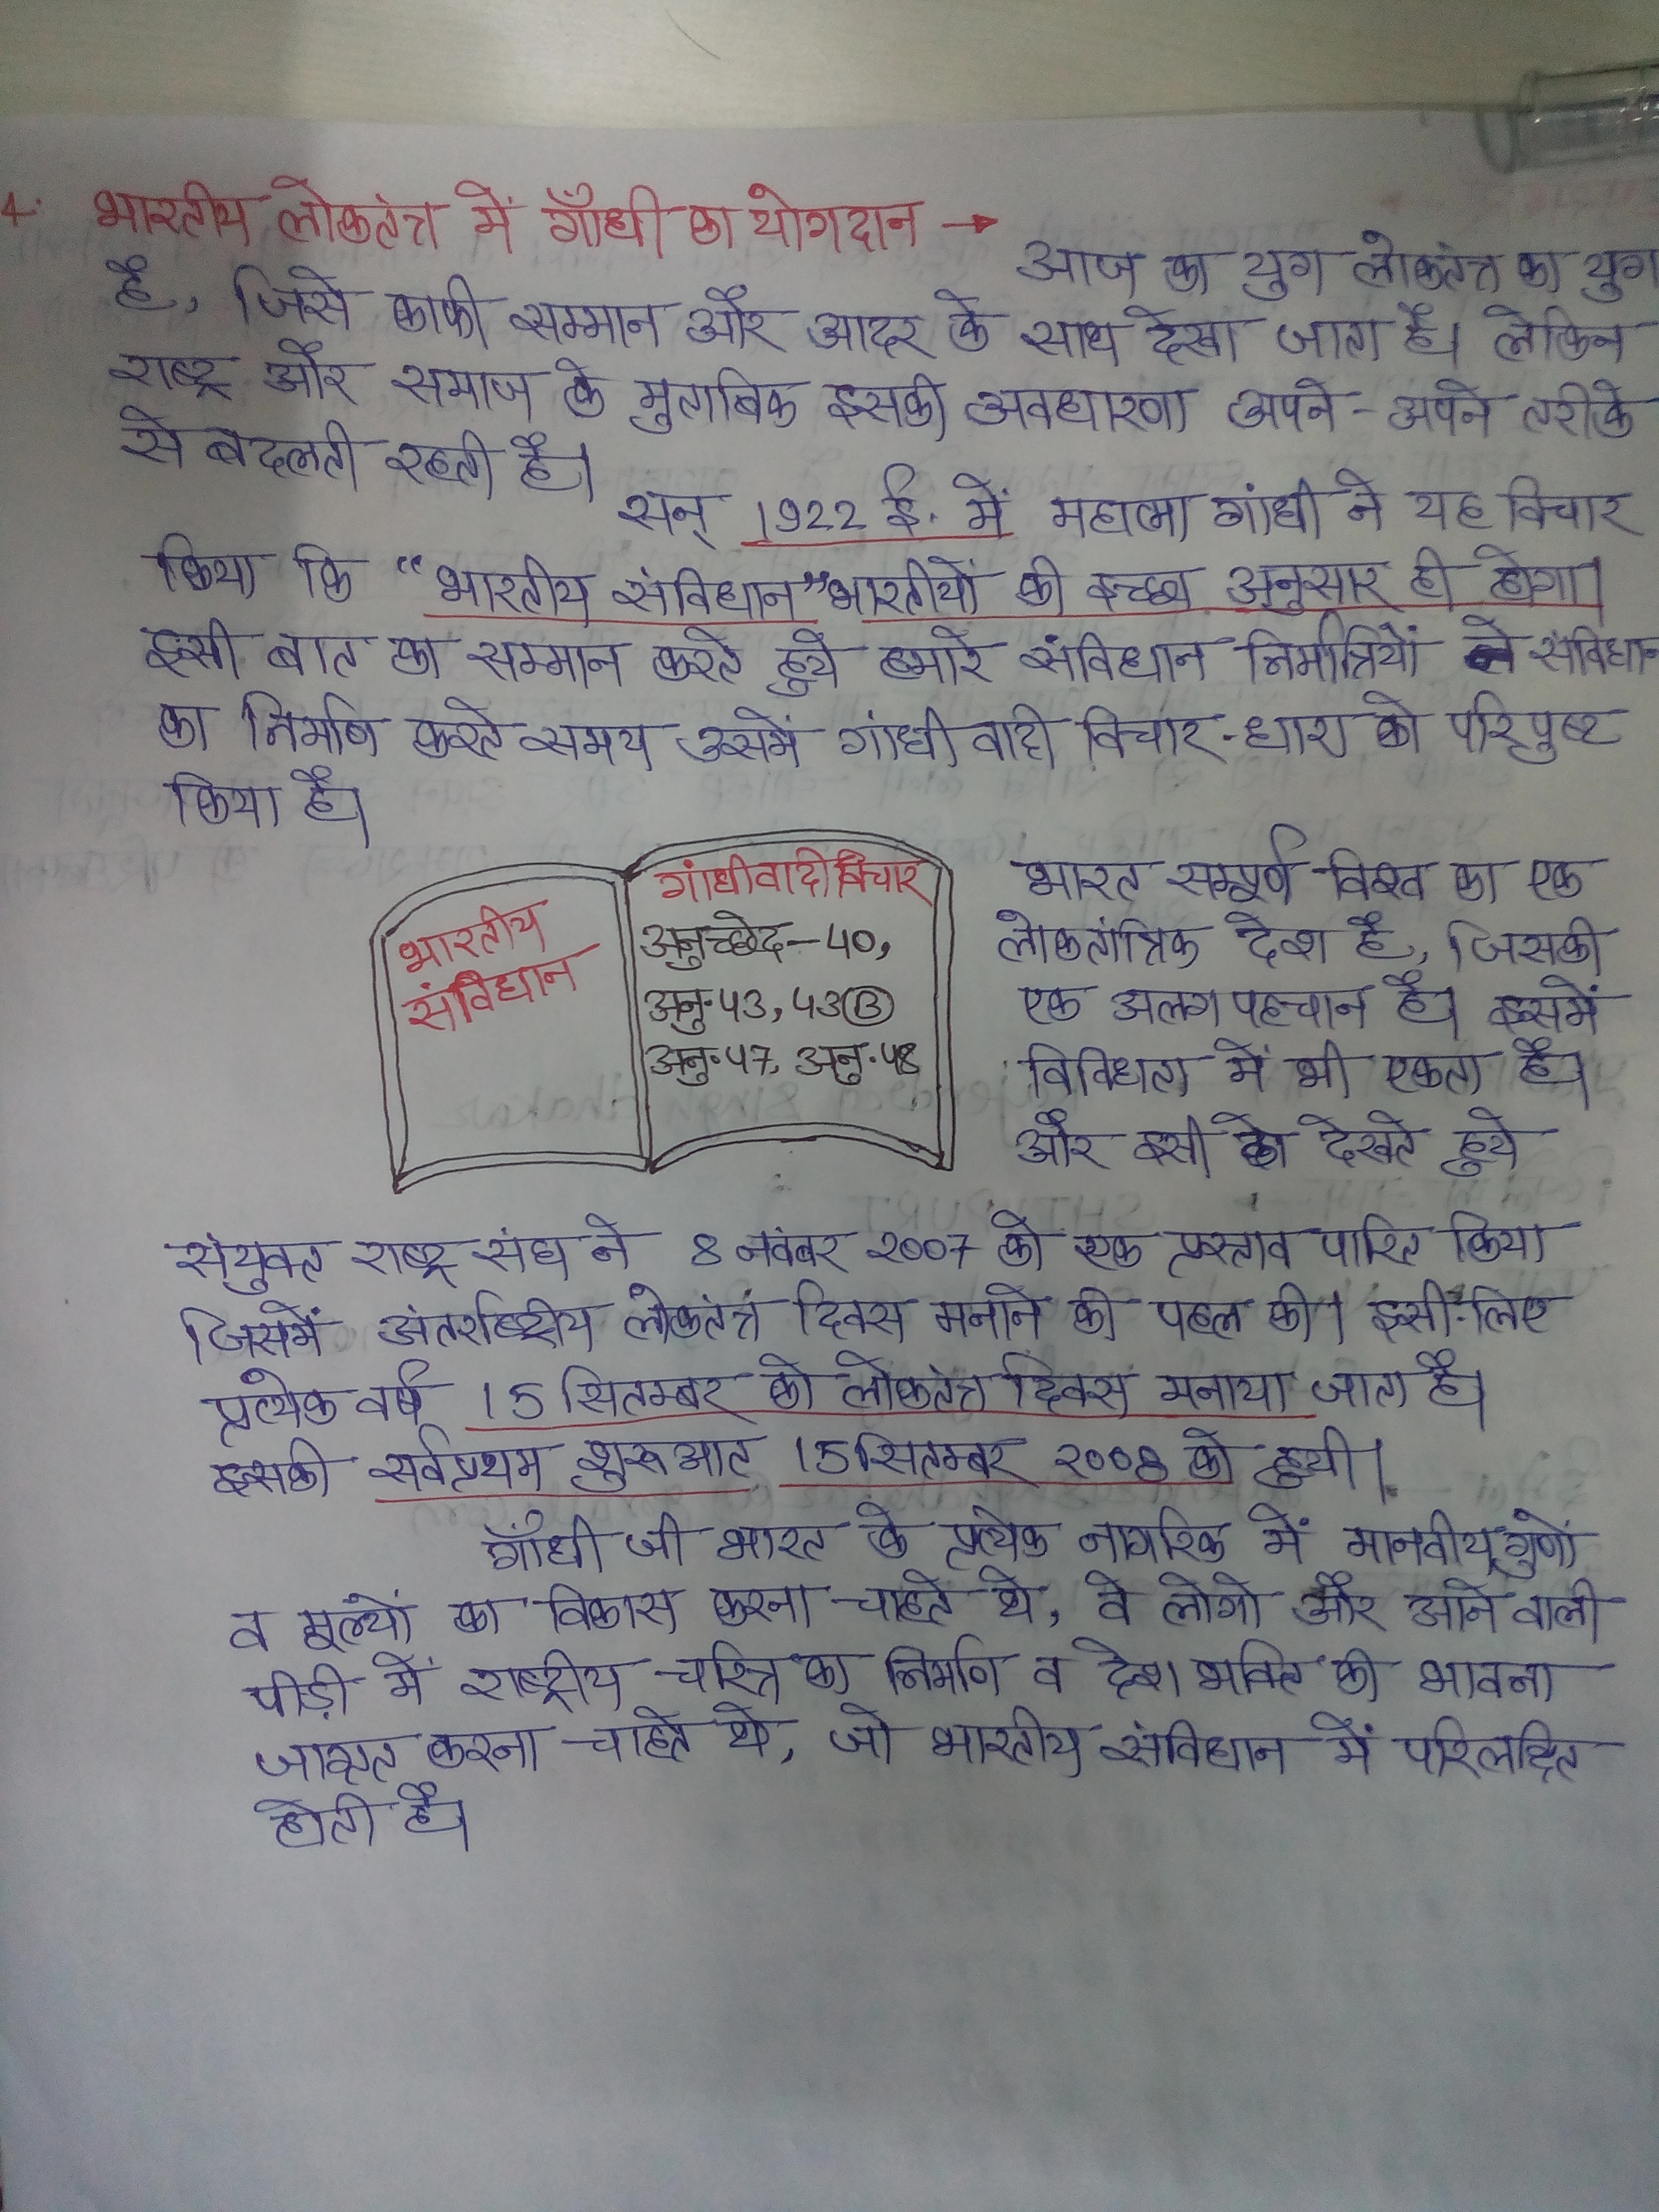 4. भारतीय लोकतंत्र में गाँधी का योगदान →
आज का युग लोकतंत्र का युग
है, जिसे काफी सम्मान और आदर के साथ देखा जाता है। लेकिन
राष्ट्र और समाज के मुताबिक इसकी अवधारणा अपने-अपने तरीके
से बदलती रहती है।
सन् 1922 ई. में महात्मा गांधी ने यह विचार
किया कि "भारतीय संविधान" भारतीयों की इच्छा अनुसार ही होगा।
इसी बात का सम्मान करते हुये हमारे संविधान निर्मात्रियों ने संविधान
का निर्माण करते समय उसमें गांधी वादी विचार-धारा को परिपुष्ट
किया है।
भारतीय
संविधान
गांधीवादी विचार
अनुच्छेद-40,
अनु.43, 43(B)
अनु.47, अनु.48
भारत सम्पूर्ण विश्व का एक
लोकतांत्रिक देश है, जिसकी
एक अलग पहचान है। इसमें
विविधता में भी एकता है।
और इसी को देखते हुये
संयुक्त राष्ट्र संघ ने 8 नवंबर 2007 को एक प्रस्ताव पारित किया
जिसमें अंतर्राष्ट्रीय लोकतंत्र दिवस मनाने की पहल की। इसी-लिए
प्रत्येक वर्ष 15 सितम्बर को लोकतंत्र दिवस मनाया जाता है।
इसकी सर्वप्रथम शुरूआत 15 सितम्बर 2008 को हुयी।
गाँधी जी भारत के प्रत्येक नागरिक में मानवीय गुणों
व मूल्यों का विकास करना चाहते थे, वे लोगो और आने वाली
पीड़ी में राष्ट्रीय चरित्र का निर्माण व देश भक्ति की भावना
जाग्रत करना चाहते थे, जो भारतीय संविधान में परिलक्षित
होती है।